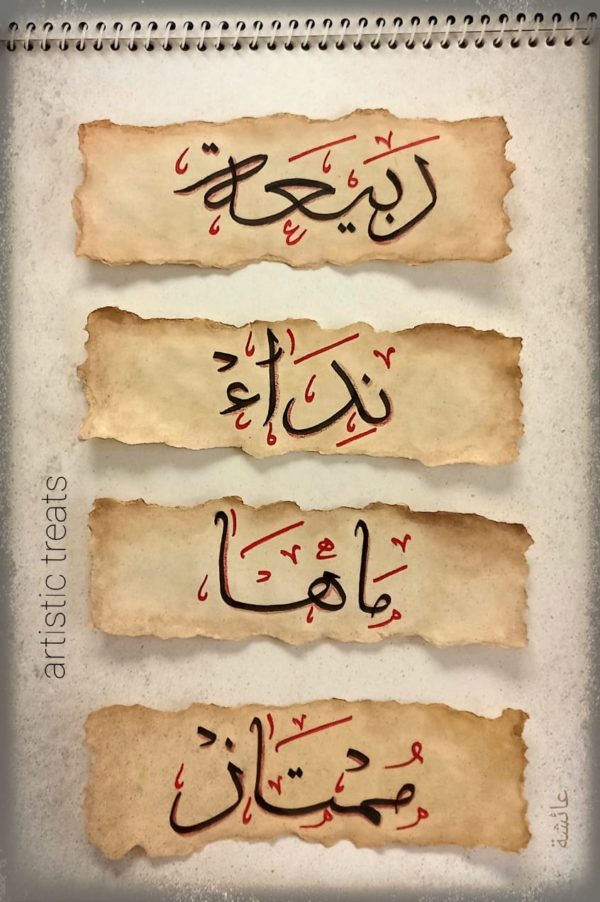 ربيعة
نِداء
ماھا
مُمتاز
artistic treats
عائشة